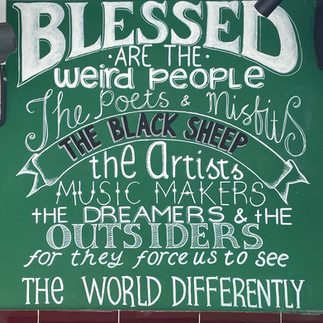 BLESSED
·ARE THE·
weird people
The Poets & Misfits
THE BLACK SHEEP
the artists
MUSIC MAKERS
the DREAMERS & the
OUTSIDERS
for they force us to see
THE WORLD DIFFERENTLY